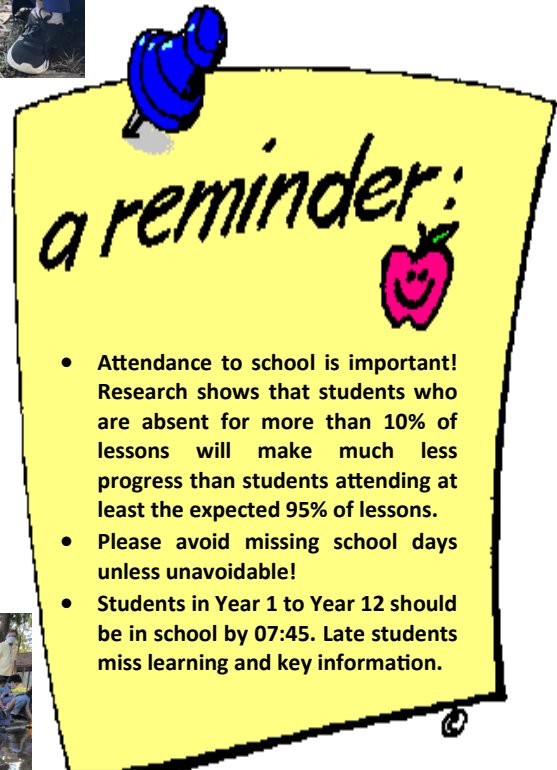 a reminder:
• Attendance to school is important!
Research shows that students who
are absent for more than 10% of
lessons will make much less
progress than students attending at
least the expected 95% of lessons.
• Please avoid missing school days
unless unavoidable!
• Students in Year 1 to Year 12 should
be in school by 07:45. Late students
miss learning and key information.
©